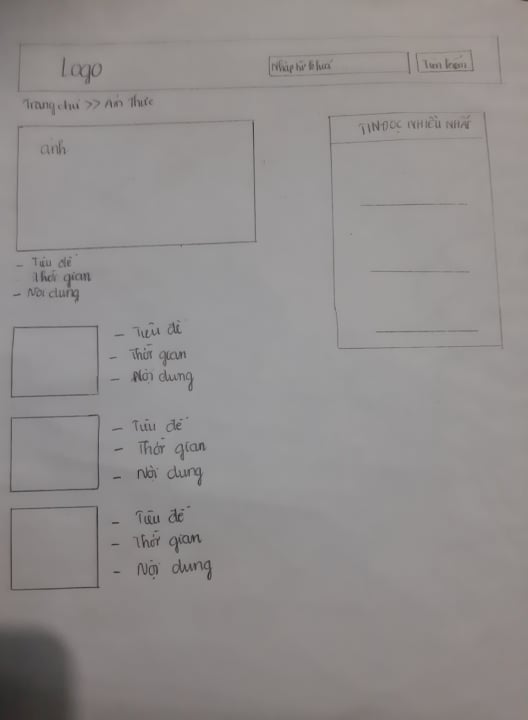 Logo
Nhập từ khoá
Tìm kiếm
Trang chủ >> Ẩm Thực
ảnh
TIN ĐỌC NHIỀU NHẤT
- Tiêu đề
Thời gian
- Nội dung
- Tiêu đề
- Thời gian
- Nội dung
- Tiêu đề
- Thời gian
- Nội dung
- Tiêu đề
- Thời gian
- Nội dung